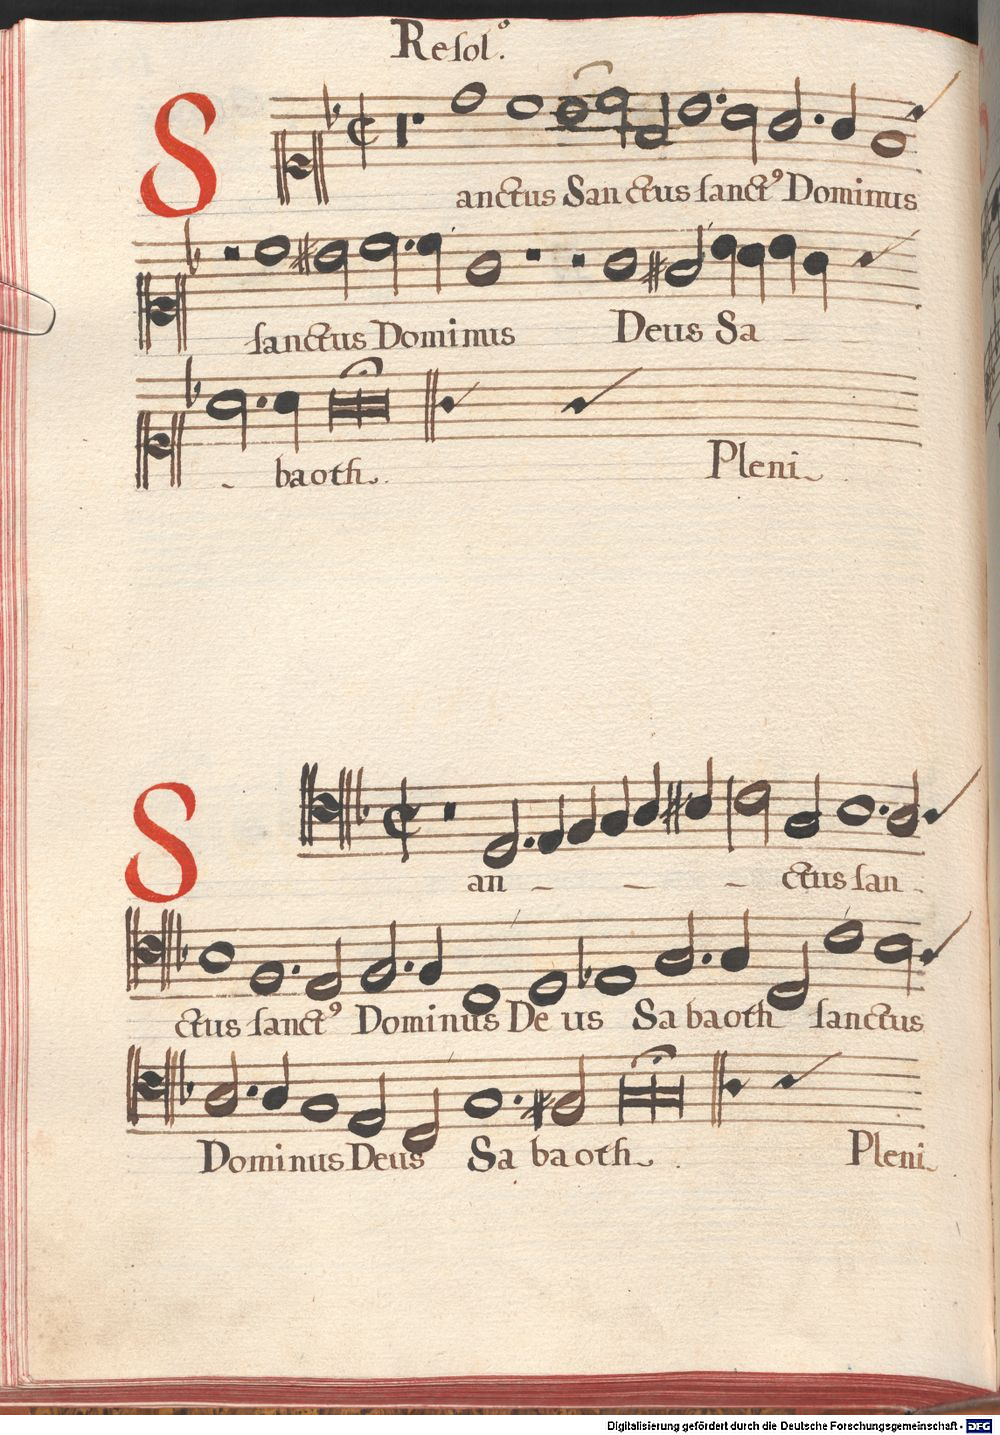 Resol.º
S
anctus Sanctus sanctꝰ Dominus
sanctus Dominus Deus Sa -
- baoth. Pleni
S
an - - - ctus san -
ctus sanctꝰ Dominus Deus Sabaoth sanctus
Dominus Deus Sa baoth. Pleni
Digitalisierung gefördert durch die Deutsche Forschungsgemeinschaft - DFG